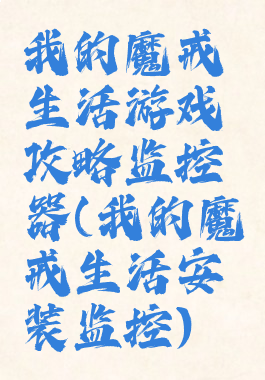 我的魔戒
生活游戏
攻略监控
器(我的魔
戒生活安
装监控)